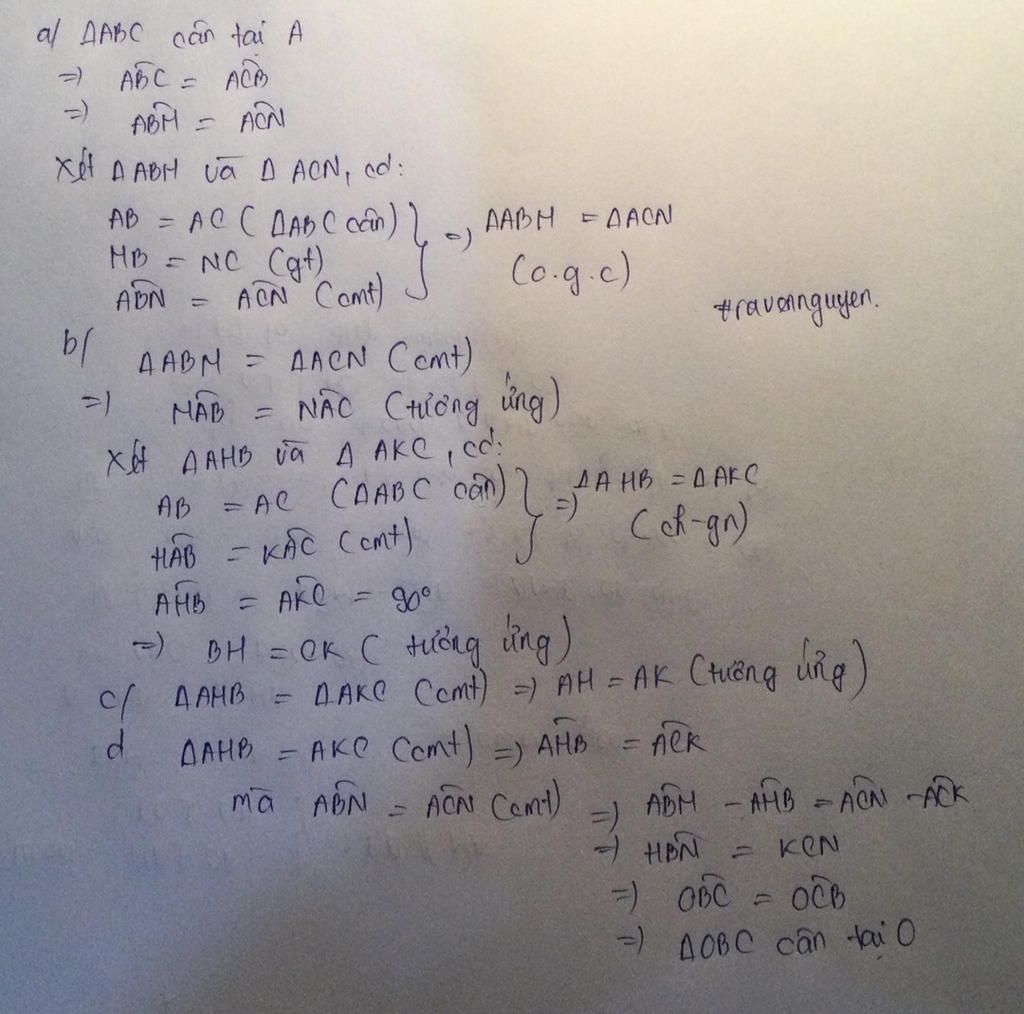 a/ ΔABC cân tại A
=) ABC^ = ACB^
=) ABM^ = ACN^
Xét ΔABM và Δ ACN, có:
AB = AC (ΔABC cân)
MB = NC (gt)
ABN^ = ACN^ (cmt)
=) ΔABM = ΔACN
(c.g.c)
travonnguyen.
b/ ΔABM = ΔACN (cmt)
=) MAB^ = NAC^ (tương ứng)
Xét ΔAHB và Δ AKC, có:
AB = AC (ΔABC cân)
HAB^ = KAC^ (cmt)
=) ΔAHB = ΔAKC
(ch-gn)
AHB^ = AKC^ = 90°
=) BH = CK ( tương ứng)
c/ ΔAHB = ΔAKC (cmt) =) AH = AK (tương ứng)
d ΔAHB = AKC (cmt) =) AHB^ = ACK^
mà ABN^ = ACN^ (cmt) =) ABM^ - AHB^ = ACN^ - ACK^
=) HBN^ = KCN^
=) OBC^ = OCB^
=) ΔOBC cân tại O